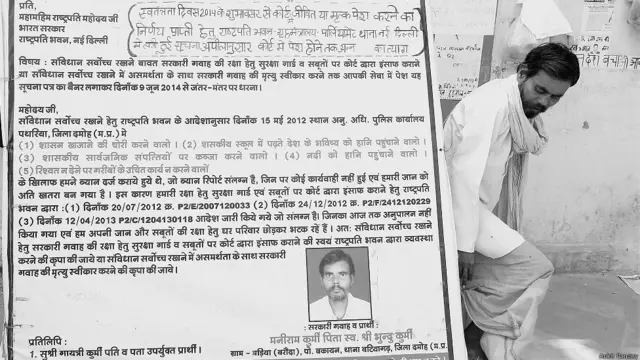 प्रति,
महामहिम राष्ट्रपति महोदय जी
भारत सरकार
राष्ट्रपति भवन, नई दिल्ली
स्वतन्त्रता दिवस 2014 के शुभावसर ले कोर्ट जीवित या मृतक पेश करने का
निर्णय प्राप्ती हेतु राष्ट्रपति भवन थाना नई दिल्ली
कोर्ट में पेश होने तक अन्न का त्याग
विषय : संविधान सर्वोच्च रखाने बावत सरकारी गवाह की रक्षा हेतु सुरक्षा गार्ड व सबूतों पर कोर्ट द्वारा इंसाफ कराने
या संविधान सर्वोच्च रखाने में असमर्थता के साथ सरकारी गवाह की मृत्यु स्वीकार करने तक आपकी सेवा में पेश यह
सूचना पत्र का बैनर लगाकर दिनांक 9 जून 2014 से जंतर-मंतर पर धरना।
महोदय जी,
संविधान सर्वोच्च रखाने हेतु राष्ट्रपति भवन के आदेशानुसार दिनांक 15 मई 2012 स्थान अनु. अधि. पुलिस कार्यालय
पथरिया, जिला दमोह (म.प्र.) मे
(1) शासन खाजाने की चोरी करने वालो । (2) शासकीय स्कूल में पढ़ते देश के भविष्य को हानि पहुंचाने वालो ।
(3) शासकीय सार्वजनिक संपत्तियों पर कब्जा करने वालो । (4) नदी को हानि पहुंचाने वालो ।
(5) रिश्वत न देने पर गरीबों के उचित कार्य न करने वालों
के खिलाफ हमने ब्यान दर्ज कराये हुये थे, जो ब्यान रिपोर्ट संलग्न है, जिन पर कोई कार्यवाही नहीं हुई एवं हमारी जान को
अति खतरा बन गया है । इस कारण हमारी रक्षा हेतु सुरक्षा गार्ड एवं सबूतों पर कोर्ट द्वारा इंसाफ कराने हेतु राष्ट्रपति
भवन द्वारा : (1) दिनांक 20/07/2012 क्र. P2/E/2007120033 (2) दिनांक 24/12/2012 क्र. P2/F/2412120229
(3) दिनांक 12/04/2013 P2/C/1204130118 आदेश जारी किये गये जो संलग्न है। जिनका आज तक अनुपालन नहीं
किया गया एवं हम अपनी जान और सबूतों की रक्षा हेतु घर परिवार छोड़कर भटक रहे हैं । अतः संविधान सर्वोच्च रखाने
हेतु सरकारी गवाह की रक्षा हेतु सुरक्षा गार्ड व सबूतों पर कोर्ट द्वारा इंसाफ कराने की स्वयं राष्ट्रपति भवन द्वारा व्यवस्था
करने की कृपा की जावे या संविधान सर्वोच्च रखाने में असमर्थता के साथ सरकारी
गवाह की मृत्यु स्वीकार करने की कृपा की जावे ।
-: सरकारी गवाह व प्रार्थी :-
मनीराम कुर्मी पिता स्व. श्री भुन्दु कुर्मी
प्रतिलिपि :
1. सुश्री गायत्री कुर्मी पति व पता उपर्युक्त प्रार्थी ।
ग्राम - बड़िया (बरौदा), पो. बकायन, थाना बटियागढ़, जिला दमोह (म.प्र.